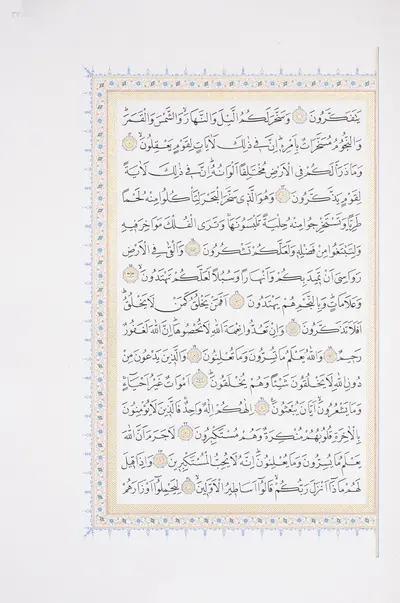 يَتَفَكَّرُونَ وَسَخَّرَ لَكُمُ الَّيْلَ وَالنَّهَارَۙ وَالشَّمْسَ وَالْقَمَرَۜ
وَالنُّجُومُ مُسَخَّرَاتٌ بِاَمْرِهِۜ اِنَّ فِي ذٰلِكَ لَاٰيَاتٍ لِقَوْمٍ يَعْقِلُونَۙ
وَمَا ذَرَاَ لَكُمْ فِي الْاَرْضِ مُخْتَلِفًا اَلْوَانُهُۜ اِنَّ فِي ذٰلِكَ لَاٰيَةً
لِقَوْمٍ يَذَّكَّرُونَ وَهُوَ الَّذِي سَخَّرَ الْبَحْرَ لِتَأْكُلُوا مِنْهُ لَحْمًا
طَرِيًّا وَتَسْتَخْرِجُوا مِنْهُ حِلْيَةً تَلْبَسُونَهَاۚ وَتَرَى الْفُلْكَ مَوَاخِرَ فِيهِ
وَلِتَبْتَغُوا مِنْ فَضْلِهِ وَلَعَلَّكُمْ تَشْكُرُونَ وَاَلْقٰى فِي الْاَرْضِ
رَوَاسِيَ اَنْ تَمِيدَ بِكُمْ وَاَنْهَارًا وَسُبُلًا لَعَلَّكُمْ تَهْتَدُونَۙ
وَعَلَامَاتٍۜ وَبِالنَّجْمِ هُمْ يَهْتَدُونَ اَفَمَنْ يَخْلُقُ كَمَنْ لَا يَخْلُقُۜ
اَفَلَا تَذَكَّرُونَ وَاِنْ تَعُدُّوا نِعْمَةَ اللهِ لَا تُحْصُوهَاۜ اِنَّ اللهَ لَغَفُورٌ
رَحِيمٌ وَاللهُ يَعْلَمُ مَا تُسِرُّونَ وَمَا تُعْلِنُونَ وَالَّذِينَ يَدْعُونَ مِنْ
دُونِ اللهِ لَا يَخْلُقُونَ شَيْئًا وَهُمْ يُخْلَقُونَۜ اَمْوَاتٌ غَيْرُ اَحْيَاءٍۚ
وَمَا يَشْعُرُونَۙ اَيَّانَ يُبْعَثُونَ اِلٰهُكُمْ اِلٰهٌ وَاحِدٌۚ فَالَّذِينَ لَا يُؤْمِنُونَ
بِالْاٰخِرَةِ قُلُوبُهُمْ مُنْكِرَةٌ وَهُمْ مُسْتَكْبِرُونَ لَا جَرَمَ اَنَّ اللهَ
يَعْلَمُ مَا يُسِرُّونَ وَمَا يُعْلِنُونَۜ اِنَّهُ لَا يُحِبُّ الْمُسْتَكْبِرِينَ وَاِذَا قِيلَ
لَهُمْ مَاذَا اَنْزَلَ رَبُّكُمْۙ قَالُوا اَسَاطِيرُ الْاَوَّلِينَۙ لِيَحْمِلُوا اَوْزَارَهُمْ